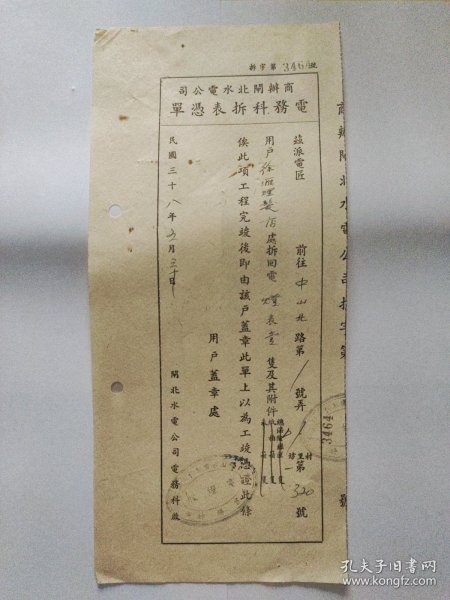 拆字第3464號
商辦閘北水電公司
電務科拆表憑單
茲派電匠　前往中山北路第1號弄1村里坊第320號
用戶徐雁理髮店處拆回電燈表壹隻及其附件
俟此項工程完竣後即由該戶蓋章此單上以為工竣憑證此條
用戶蓋章處
民國三十八年五月三十日
閘北水電公司電務科啟
商辦閘北水電公司拆字第
3464
號
孔夫子旧书网
www.kongfz.com